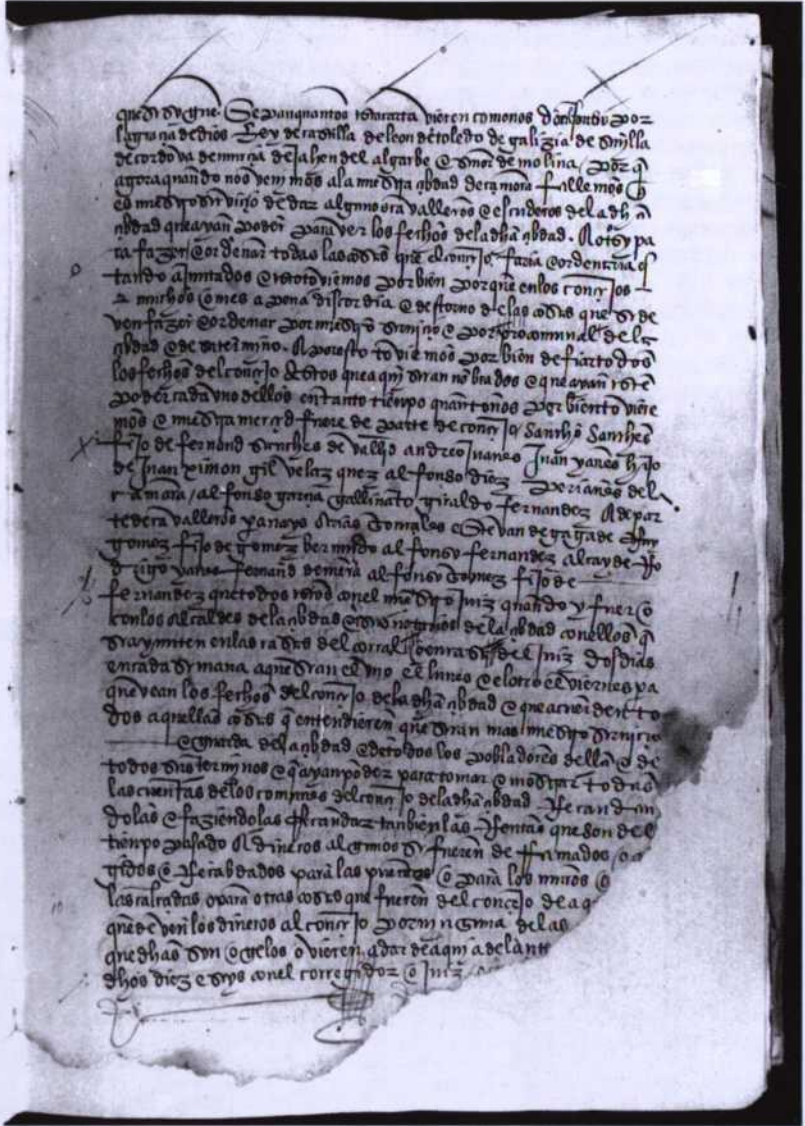 que se sygue. Sepan quantos esta carta vieren como nos don alfonso por
la graçia de dios Rey de castilla de leon de toledo de galizia de seuilla
de cordova de murçia de jahen del algarbe e señor de molina / por q̃
agora quando nos venimos a la nuestra çibdad de çamora fallemos q̃
es nuestro seruiçio de dar algunos caualleros e escuderos de la dha
çibdad que ayan poder para ver los fechos de la dha çibdad. E otrosy pa
ra fazer e ordenar todas las cosas que el conçejo faria e ordenaria es
tando ajuntados e esto touiemos por bien porque en los conçejos
muchos omes a pena discordia e destorno de las cosas que se de
ven fazer e ordenar por nuestro seruiçio e por pro comunal de la
çibdad e de su termino. E por esto touiemos por bien de fiar todos
los fechos del conçejo destos que aqui seran nonbrados e que ayan este
poder cada vno dellos en tanto tienpo quanto nos por bien touiere
mos e nuestra merçed fuere de parte de conçejo / Sancho Sanches
fijo de fernand sanches de vallid andreo juanes Juan yanes hijo
de Juan ximon gil velazquez alfonso diez perianes de la
camara / alfonso garçia gallinato giraldo fernandez E de par
te de caualleros arias gonçales esteuan de gagade Ruy
gomez fijo de gomez bermudo alfonso fernandez alcayde Ro
drigo yanes fernand de meria alfonso gomez fijo de
fernandez que todos con el nuestro juiz quando y fuer o
con los alcaldes de la çibdad e escriuanos de la çibdad con ellos q̃
se ayunten en las casas del corral o en casa del juiz dos dias
en cada semana a que seran el vno el lunes e el otro el viernes pa
que vean los fechos del conçejo de la dha çibdad e que acuerden to
dos aquellas cosas q̃ entendieren que seran mas nuestro seruiçio
e guarda de la çibdad e de todos los pobladores della e de
todos sus terminos e q̃ ayan poder para tomar e mostrar todas
las cuentas de los comunes del conçejo de la dha çibdad Recaudan
dolas e faziendolas Recaudar tanbien las Rentas que son del
tienpo pasado E dineros algunos sy fueren derramados / o
gidos o Recabdados para las puentes o para los muros o
las calçadas o para otras cosas que fueren del conçejo de a
que deven los dineros al conçejo por ninguna de las
que dhas son o gelos ovieren a dar de aqui adelante
dhos diez e seys con el corregidor o juiz